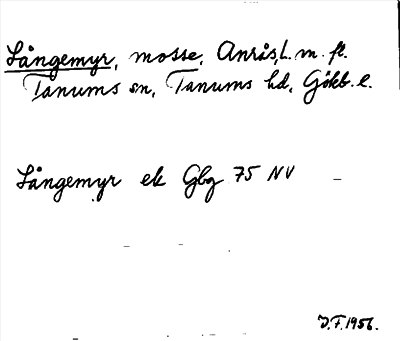 Långemyr, mosse, Anrås, L. m. fl.
Tanums sn, Tanums hd, Gökb. l.
Långemyr ek Gbg 75 NV
J.F. 1956.